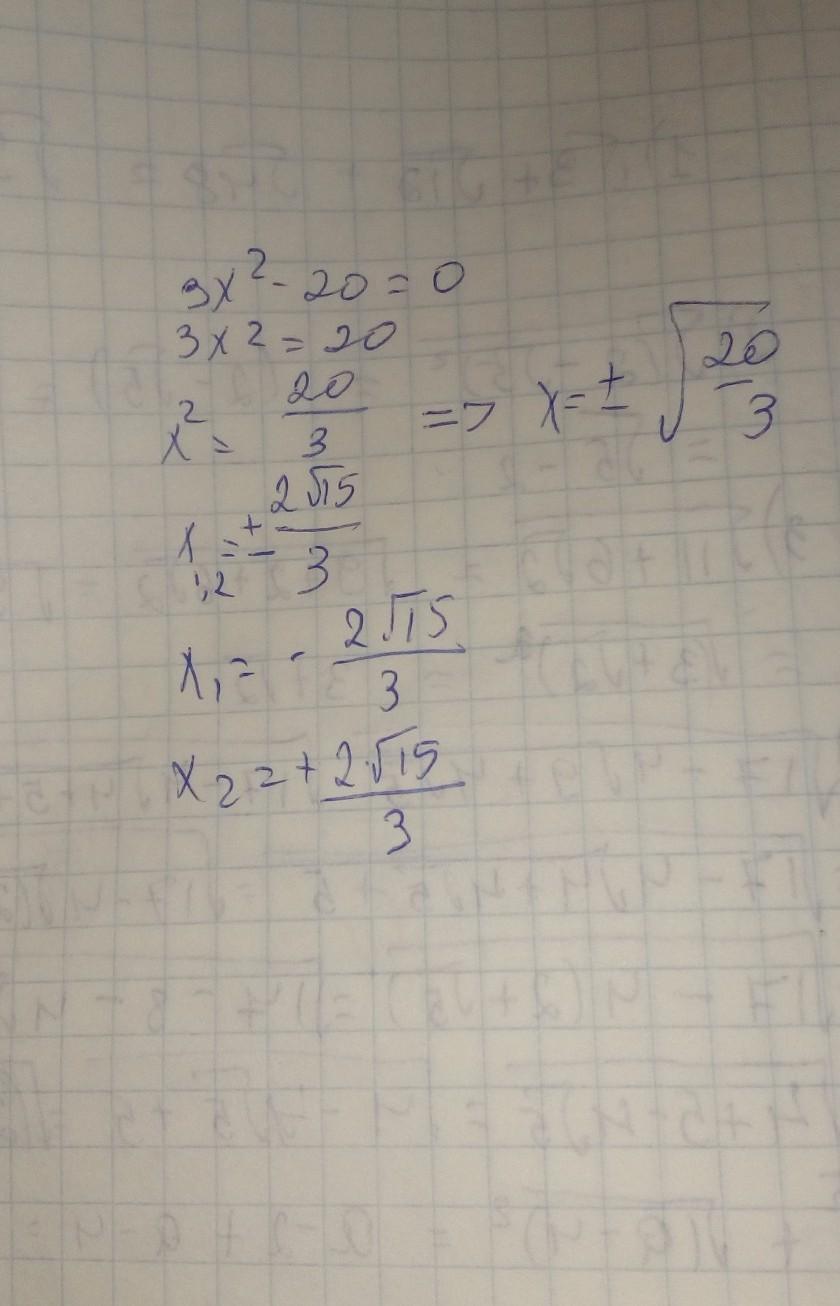 3x² - 20 = 0
3x² = 20
x² = 20/3 => x = ± √(20/3)
x₁,₂ = ± 2√15/3
x₁ = - 2√15/3
x₂ = + 2√15/3